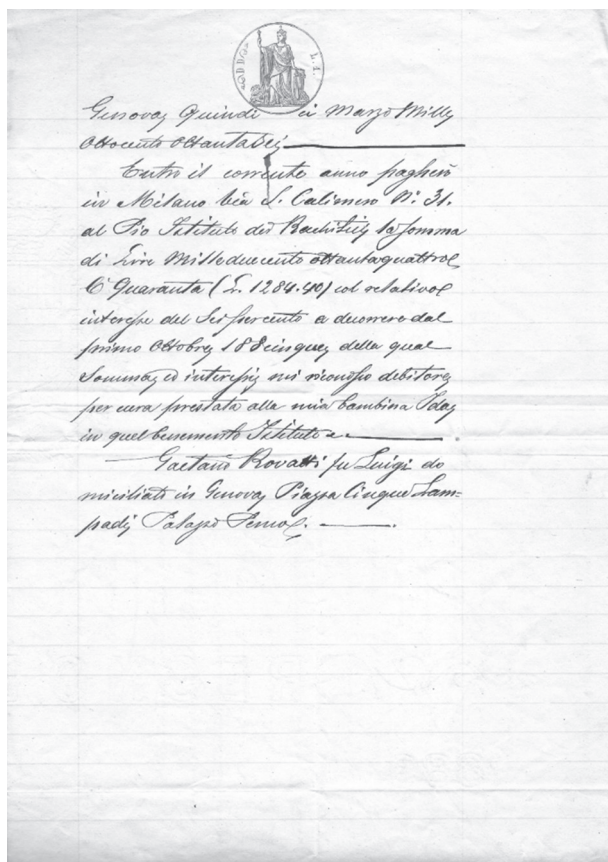 Genova Quindi ci Marzo Mille
Ottocento Ottantasei
Entro il corrente anno pagherò
in Milano Via S. Calimero N.º 31.
al Pio Istituto dei Rachitici la somma
di Lire Mille duecento ottantaquattro
E Quaranta (L. 1284.40) col relativo
interesse del Sei per cento a decorrere dal
primo Ottobre 188cinque della qual
Somma ed interessi mi riconosco debitore
per cura prestata alla mia bambina Ida
in quel benemerito Istituto
Gaetano Rovatti fu Luigi do
miciliato in Genova Piazza Cinque Lam=
padi Palazzo